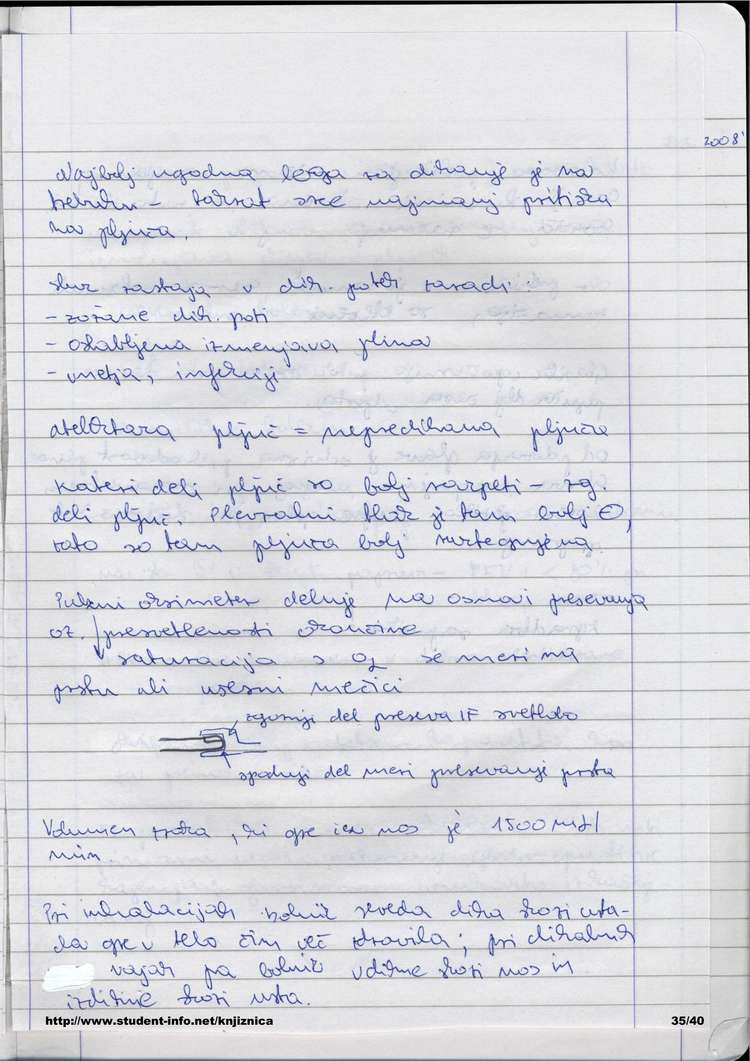 2008'
Najbolj ugodna lega za dihanje je na
trebuhu - takrat srce najmanj pritiska
na pljuča.
zastaja v dih. poteh zaradi:
- zožane dih. poti
- oslabljena izmenjava plina
- vnetja, infekciji
atelektaza pljuč = nepredihana pljuča
Kateri deli pljuč so bolj razpeti - zg
deli pljuč. Plevralni tlak je tam bolj ⊖,
zato so tam pljuča bolj raztegnjena.
Pulzni oksimeter deluje na osnovi presevanja
oz. presvetlenosti okončine
↳ saturacija s O2 se meri na
prstu ali ušesni mečici
zgornji del preseva IF svetlobo
spodnji del meri presevanje prsta
Volumen zraka, ki gre čez nos je 1500 ml/
min.
Pri inhalacijah bolnik seveda diha skozi usta -
da gre v telo čim več zdravila; pri dihalnih
vajah pa bolnik vdihne skozi nos in
izdihne skozi usta.
http://www.student-info.net/knjiznica
35/40